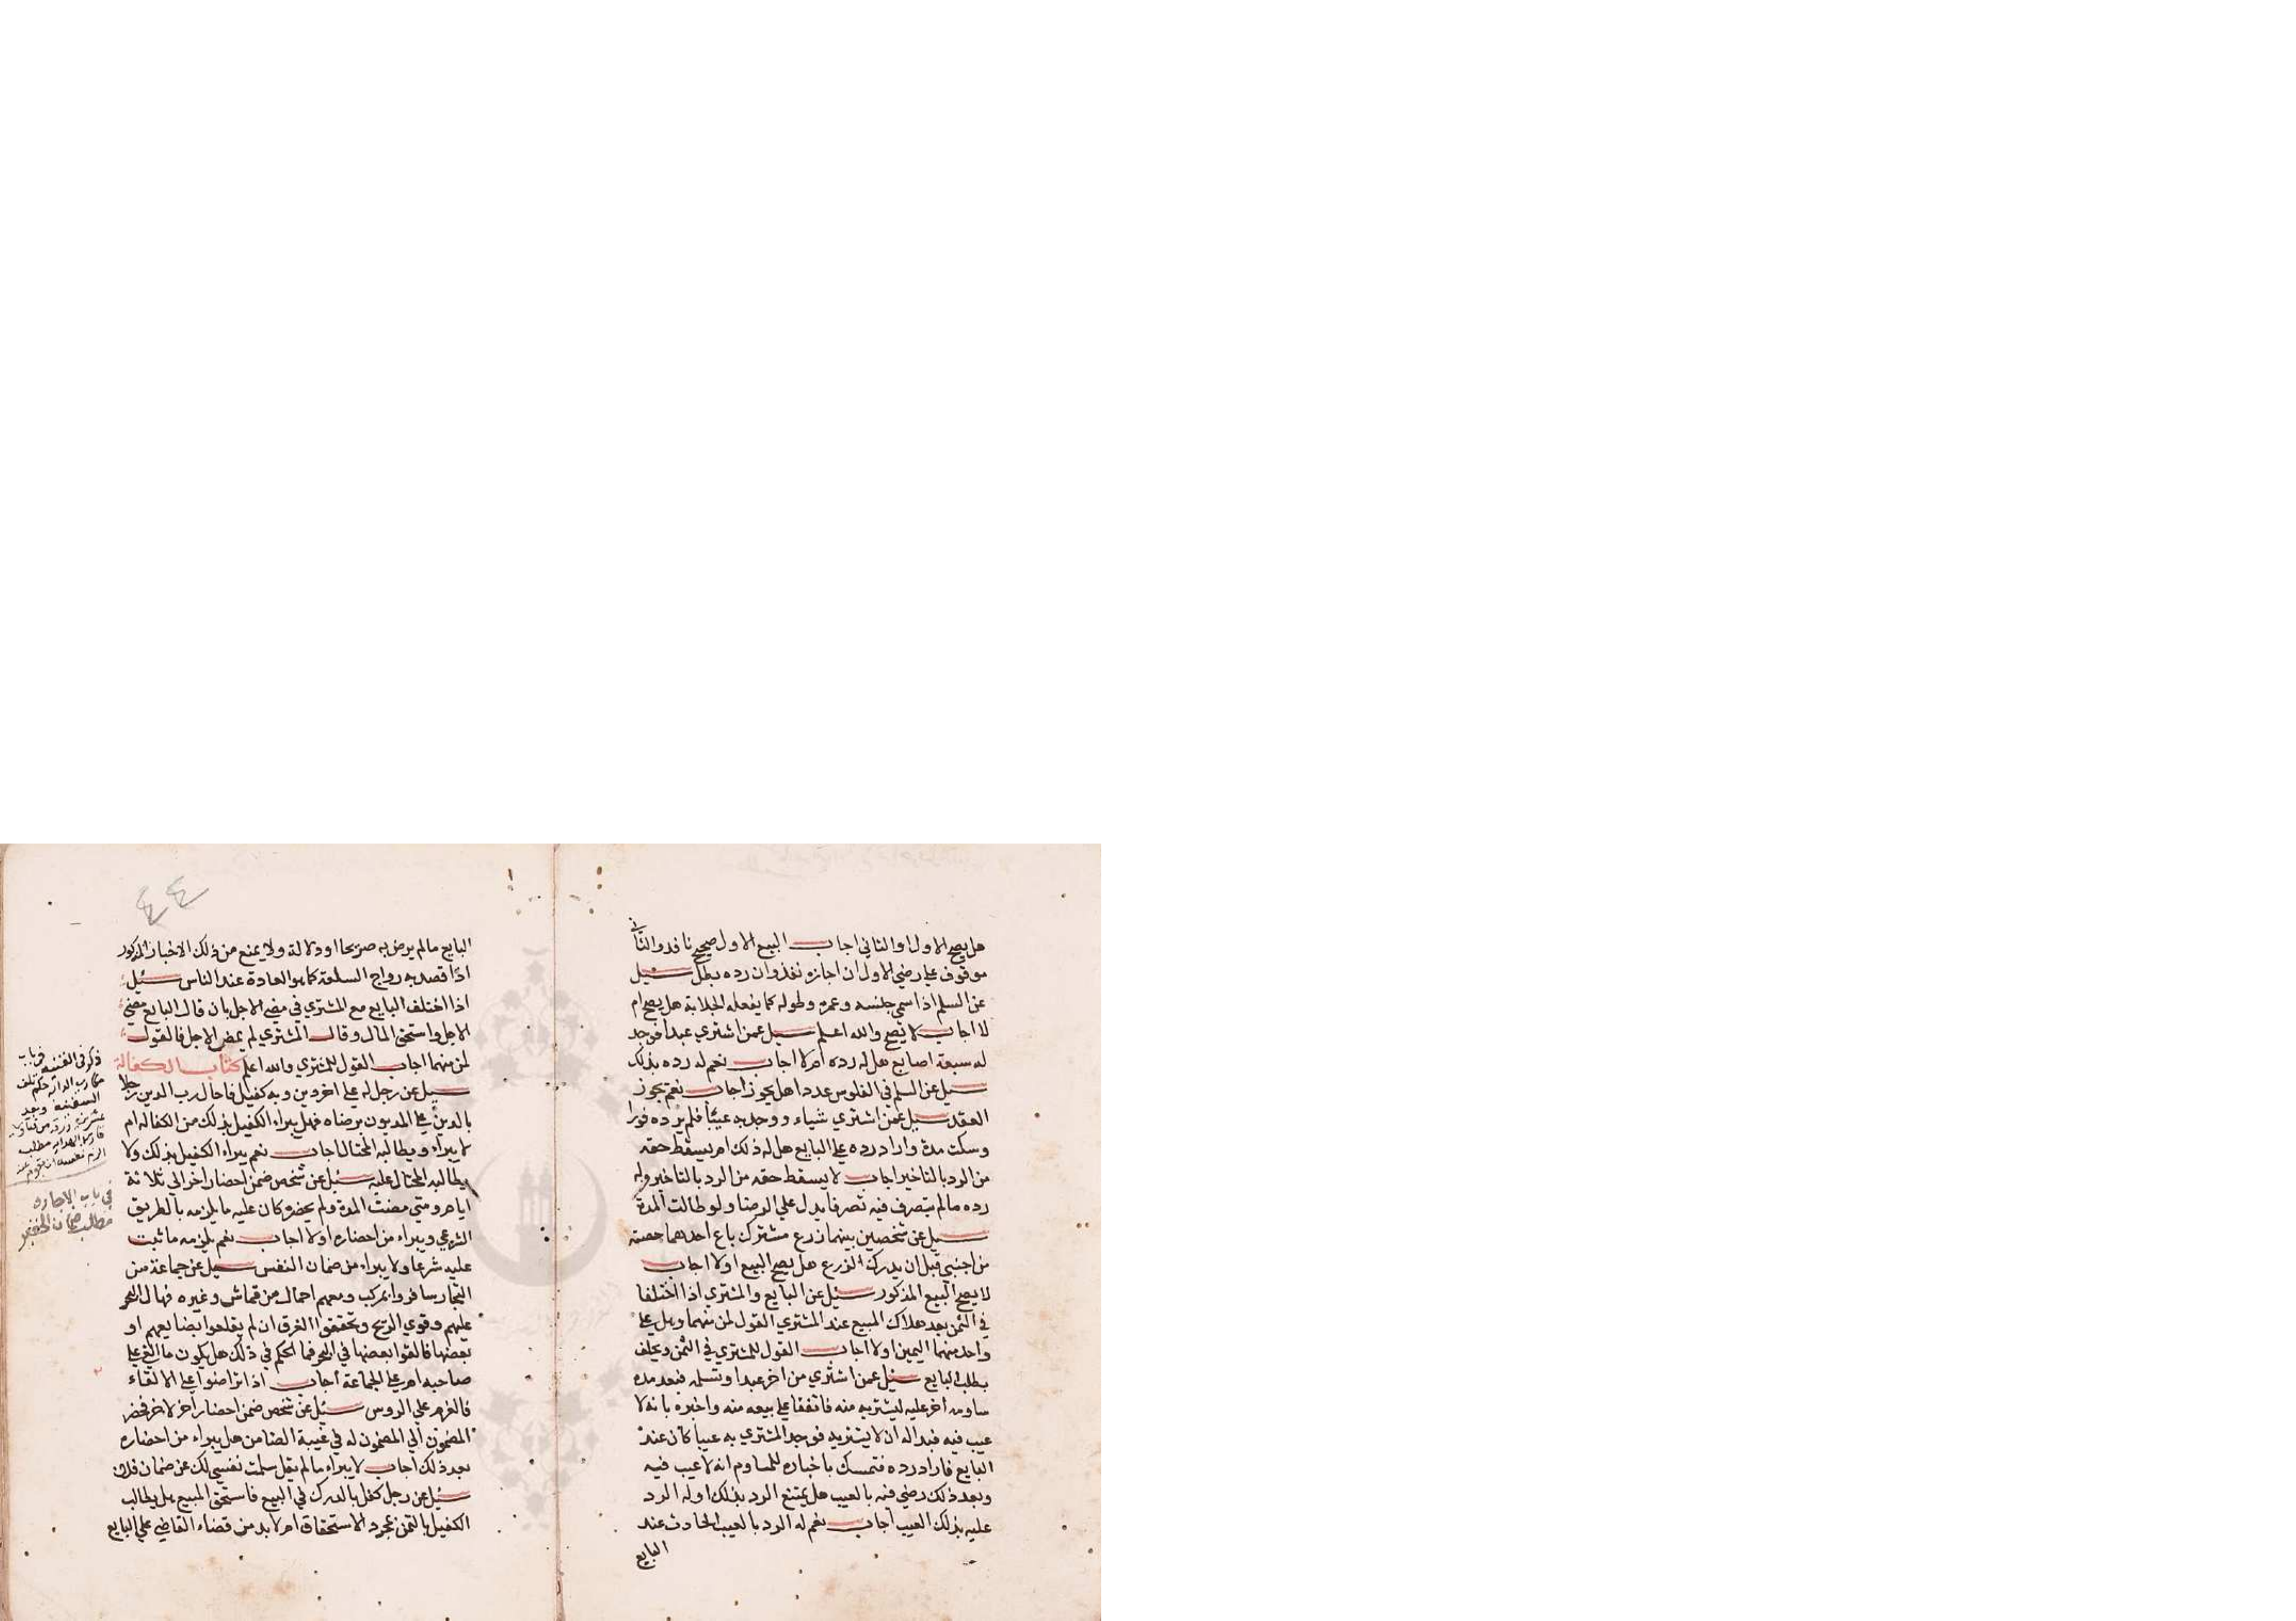 هل يصح الاول او الثاني اجاب البيع الاول صحيح نافذ والثاني
موقوف علي رضي الاول ان اجازه نفذ وان رده بطل سيل
عن السلم اذا سمي جنسه وعمره وطوله كما يفعله الجلابة هل يصح ام
لا اجاب لا يصح والله اعلم سيل عمن اشتري عبدا فوجد
له سبعة اصابع هل له رده ام لا اجاب نعم له رده بذلك
سيل عن السلم في الفلوس عددا هل يجوز اجاب نعم يجوز
العقد سيل عمن اشتري شياء ووجد به عيبا فلم يرده فورا
وسكت مدة واراد رده علي البايع هل له ذلك ام يسقط حقه
من الرد بالتاخير اجاب لا يسقط حقه من الرد بالتاخير وله
رده ما لم يتصرف فيه تصرفا يدل علي الرضا ولو طالت المدة
سيل عن شخصين بينهما زرع مشترك باع احدهما حصته
من اجنبي قبل ان يدرك الزرع هل يصح البيع اولا اجاب
لا يصح البيع المذكور سئيل عن البايع والمشتري اذا اختلفا
في الثمن بعد هلاك المبيع عند المشتري القول لمن منهما وهل علي
واحد منهما اليمين اولا اجاب القول للمشتري في الثمن ويحلف
بطلب البايع سئيل عمن اشتري من اخر عبدا وتسلمه فبعد مدة
ساومه اخر عليه ليشتريه منه فاتفقا علي بيعه منه واخبره بانه لا
عيب فيه فبدا له ان لا يشتريه فوجد المشتري به عيبا كان عند
البايع فاراد رده فتمسك باخباره للمساوم انه لا عيب فيه
وبعد ذلك رضي فيه بالعيب هل يمتنع الرد بذلك او له الرد
عليه بذلك العيب اجاب نعم له الرد بالعيب الحادث عند
البايع
٤٤
البايع ما لم يرض به صريحا او دلالة ولا يمنع من ذلك الاخبار المذكور
اذا قصد به رواج السلعة كما هو العادة عند الناس سئيل
اذا اختلف البايع مع المشتري في مضي الاجل بان قال البايع مضي
الاجل واستحق المال وقال المشتري لم يمض الاجل فالقول
لمن منهما اجاب القول للمشتري والله اعلم كتاب الكفالة
سيل عن رجل له علي اخر دين وبه كفيل فاحال رب الدين رجلا
بالدين علي المديون برضاه فهل يبراء الكفيل بذلك من الكفالة ام
لا يبراء ويطالبه المحتال اجاب نعم يبراء الكفيل بذلك ولا
يطالبه المحتال عليه سئيل عن شخص ضمن احضار اخر الي ثلاثة
ايام ومتي مضت المدة ولم يحضر كان عليه ما يلزمه بالطريق
الشرعي ويبراء من احضاره اولا اجاب نعم يلزمه ما ثبت
عليه شرعا ولا يبراء من ضمان النفس سيل عن جماعة من
التجار سافروا بمركب ومعهم احمال من قماش وغيره فهال البحر
عليهم وقوي الريح وتحققوا الغرق ان لم يقلعوا بضايعهم او
بعضها فالقوا بعضها في البحر فما الحكم في ذلك هل يكون ما القي علي
صاحبه ام علي الجماعة اجاب اذا تراضوا علي الالقاء
فالغرم علي الروس سئيل عن شخص ضمن احضار اخر لاخر فحضر
المضمون الي المضمون له في غيبة الضامن هل يبراء من احضاره
بعد ذلك اجاب لا يبراء ما لم يقل سلمت نفسي لك عن ضمان فلان
سئيل عن رجل كفل بالدرك في البيع فاستحق المبيع هل يطالب
الكفيل بالثمن بمجرد الاستحقاق ام لا بد من قضاء القاضي علي البايع
ذكر في القنية في باب
حكم تلف
السفينة
مطلب
في باب الاجارة
مطلب ضمان الخفير